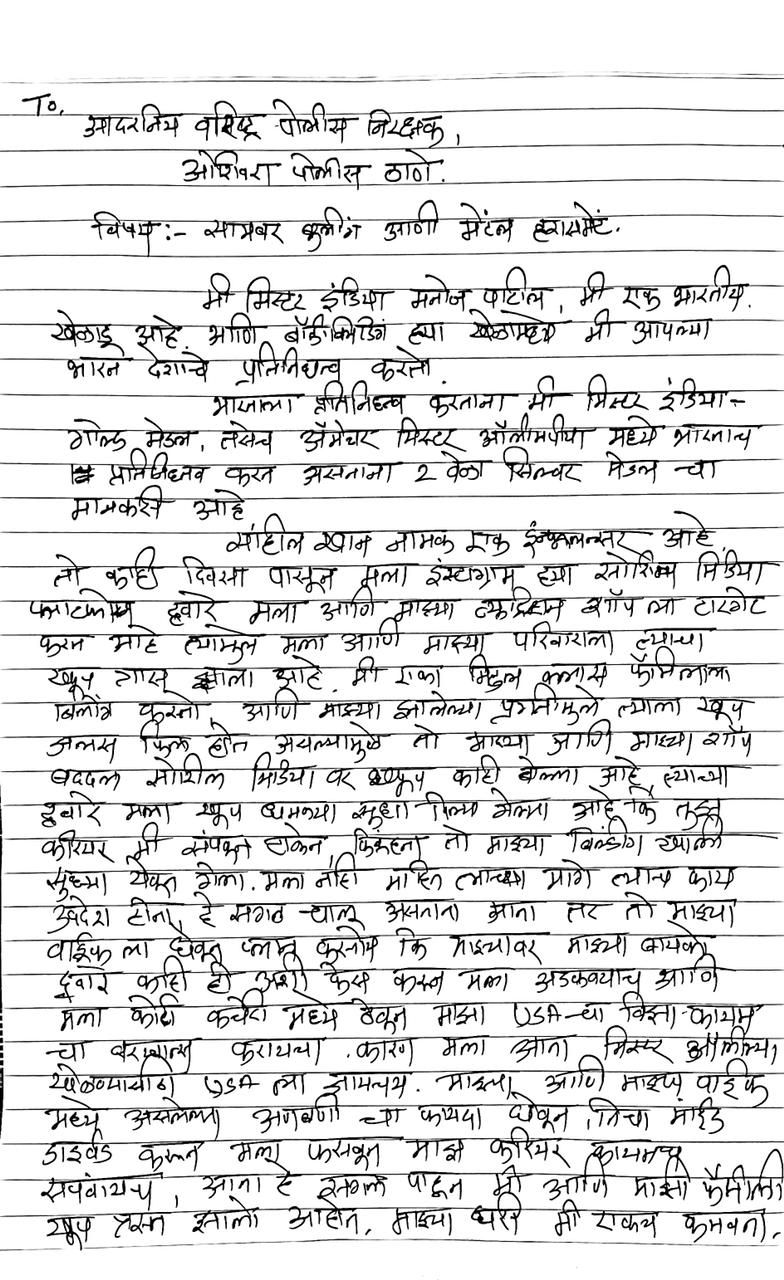 To,
आदरनिय वरिष्ठ पोलीस निरक्षक,
ओशिवरा पोलीस ठाणे.
विषय:- सायबर बुलींग आणी मेंटल हरासमेंट.
मी मिस्टर इंडिया मनोज पाटील, मी एक भारतीय
खेळाडू आहे. आणि बॉडीबिल्डिंग ह्या खेळामध्ये मी आपल्या
भारत देशाचे प्रतिनिधत्व करतो.
भारताला प्रतिनिधत्व करताना मी मिस्टर इंडिया -
गोल्ड मेडल, तसेच अ‍ॅमेचर मिस्टर ऑलीमपीया मध्ये भारताच
प्रतिनिधत्व करत असताना 2 वेळा सिल्वर मेडल चा
मानकरी आहे
साहील खान नामक एक इंन्फ्लुलन्सर आहे,
तो काही दिवसा पासून मला इंस्टाग्राम ह्या सोशिल मिडिया
प्लाटफोम द्वारे मला आणि माझ्या न्यूट्रिशन शॉप ला टारगेट
करत आहे त्यामुळे मला आणि माझ्या परिवाराला त्याचा
खूप त्रास झाला आहे. मी एका मिडल क्लास फॅमिलीला
बिलाँग करतो, आणि माझ्या झालेल्या प्रगतीमुळे त्याला खूप
जलस फिल होत असल्यामुळे तो माझ्या आणि माझ्या शॉप
बददल सोशिल मिडिया वर खूप काही बोल्ला आहे, त्याच्या
द्वारे मला खूप धमक्या सुधा दिल्या गेल्या आहे कि तुझ
करियर मी संपवून टाकेन, किंबहुना तो माझ्या बिल्डींग खाली
सुध्या येऊन गेला. मला नाही माहित त्याच्या मागे त्याच काय
उद्देश होता, हे सगळ चालू असताना आता तर तो माझ्या
वाईफ ला घेवून प्लान करतोय कि माझ्यावर माझ्या बायको
द्वारे काही ही अशी केस करून मला अडकवयाच आणि
मला कोर्ट कचेरी मध्ये ठेवून माझा USA-चा विझा कायम
चा बरखास्त करायचा. कारण मला आता मिस्टर ऑलीम्पिया
खेळण्यासाठी USA ला जायचय. माझ्या आणि माझ्या वाईफ
मध्ये असलेल्या अणबणी चा फायदा घेवून, तिचा माईंड
डाइवर्ट करून मला फसवून माझ करियर कायमच
संपवायच, आता हे सगळ पाहून मी आणि माझी फॅमीली
खूप त्रस्त झालो आहोत. माझ्या घरी मी एकच कमवता.